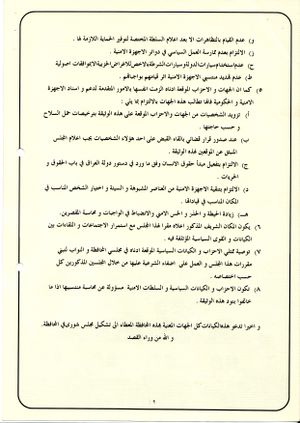 و) عدم القيام بالتظاهرات الا بعد اعلام السلطة المختصة لتوفير الحماية اللازمة لها .
ز) الالتزام بعدم ممارسة العمل السياسي في دوائر الاجهزة الامنية .
ح) عدم استخدام سيارات الدولة وسيارات الشرطة لاغراض الحزبية الا بموافقات اصولية
ط) عدم تهديد منتسبي الاجهزة الامنية اثر قيامهم بواجباتهم .
٥) كما ان الجهات و الاحزاب الموقعة ادناه الزمت انفسها بالامور المتقدمة لدعم و اسناد الاجهزة
الامنية و الحكومية فانها تطالب هذه الجهات بالالتزام بما يلي :
أ) تزويد الشخصيات من الجهات والاحزاب الموقعة على هذه الوثيقة بترخيصات حمل السلاح
و حسب حاجتها .
ب) عند صدور قرار قضائي بالقاء القبض على احد هؤلاء الشخصيات يجب اعلام المجلس
المنبثق عن الموقعين لهذه الوثيقة .
ج) الالتزام بتفعيل مبدأ حقوق الانسان وفق ما ورد في دستور دولة العراق في باب الحقوق و
الحريات .
د) الالتزام بتنقية الاجهزة الامنية من العناصر المشبوهة و السيئة و اختيار الشخص المناسب في
المكان المناسب في قياداتها .
هـ) زيادة الحيطة و الحذر و الحس الامني والانضباط في الواجبات و محاسبة المقصرين.
٦) يكون المكان الشريف المذكور اعلاه مقرا لهذا المجلس مع استمرار الاجتماعات و اللقاءات بين
الكيانات و القوى السياسية المؤتلفة فيه .
٧) توصية ممثلي الاحزاب و الكيانات السياسية الموقعة ادناه في مجلسي المحافظة و النواب لتبني
مقررات هذا المجلس و العمل على اضفاء الشرعية عليها من خلال المجلسين المذكورين كل
حسب اختصاصه .
٨) تكون الاحزاب و الكيانات السياسية و السلطات الامنية مسؤولة عن محاسبة منتسبيها اذا ما
خالفوا بنود هذه الوثيقة .
و اخيرا ندعو هذه الكيانات كل الجهات المعنية بهذه المحافظة المعطاء الى تشكيل مجلس شورى في المحافظة.
و الله من وراء القصد